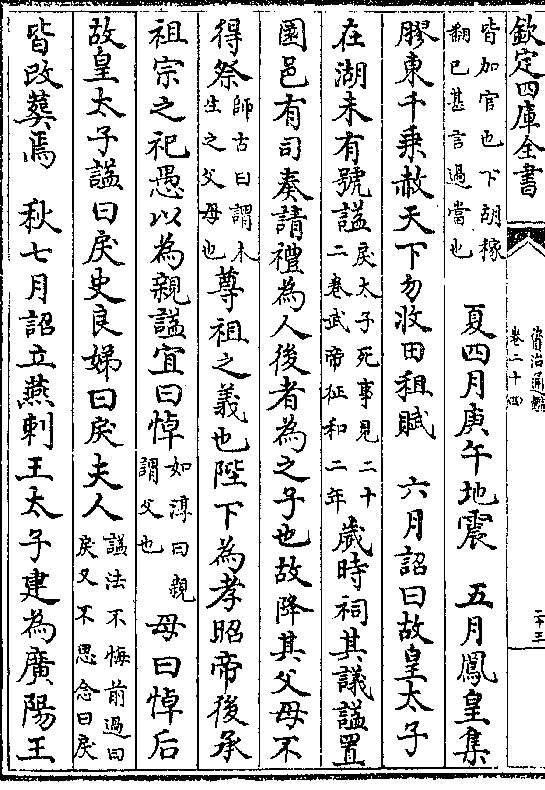 欽定四庫全書
資治通鑑
卷二十四
二十三
皆加官也下胡稼
翻已甚言過當也 夏四月庚午地震 五月鳳皇集
膠東千乘赦天下勿收田租賦 六月詔曰故皇太子
在湖未有號諡戾太子死事見二十二卷武帝征和二年歲時祠其議諡置
園邑有司奏請禮為人後者為之子也故降其父母不
得祭師古曰謂本生之父母也尊祖之義也陛下為孝昭帝後承
祖宗之祀愚以為親諡宜曰悼如淳曰親謂父也母曰悼后
故皇太子諡曰戾史良娣曰戾夫人諡法不悔前過曰戾又不思念曰戾
皆改葬焉 秋七月詔立燕剌王太子建為廣陽王